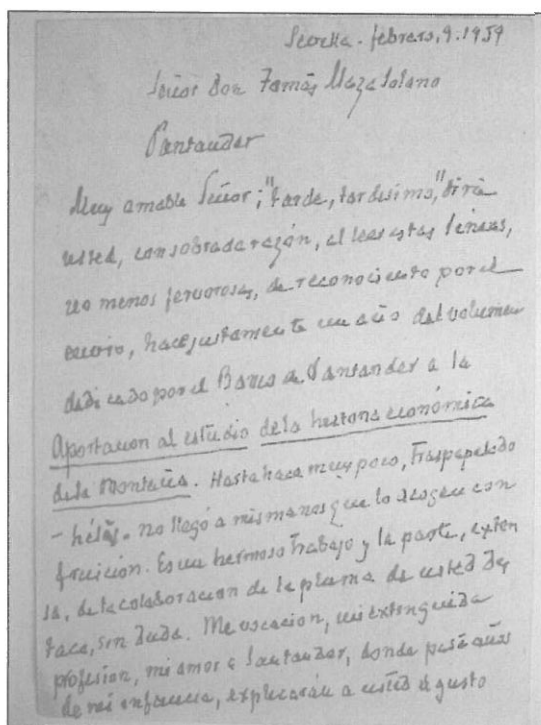 Sevilla - febrero, 9. 1959
Señor Don Tomás Maza Solano
Santander
Muy amable Señor; "tarde, tardísimo," dirá
usted, con sobrada razón, al leer estas líneas,
no menos fervorosas, de reconocimiento por el
envio, hace justamente un año del volumen
dedicado por el Banco de Santander a la
Aportacion al estudio de la historia económica
de la Montaña. Hasta hace muy poco, traspapelado
- hélas. no llegó a mis manos que lo acogen con
fruición. Es un hermoso trabajo y la parte, exten
sa, de la colaboracion de la pluma de usted des
taca, sin duda. Mi vocacion, mi extinguida
profesion, mi amor a Santander, donde pasé años
de mi infancia, explicarán a usted el gusto